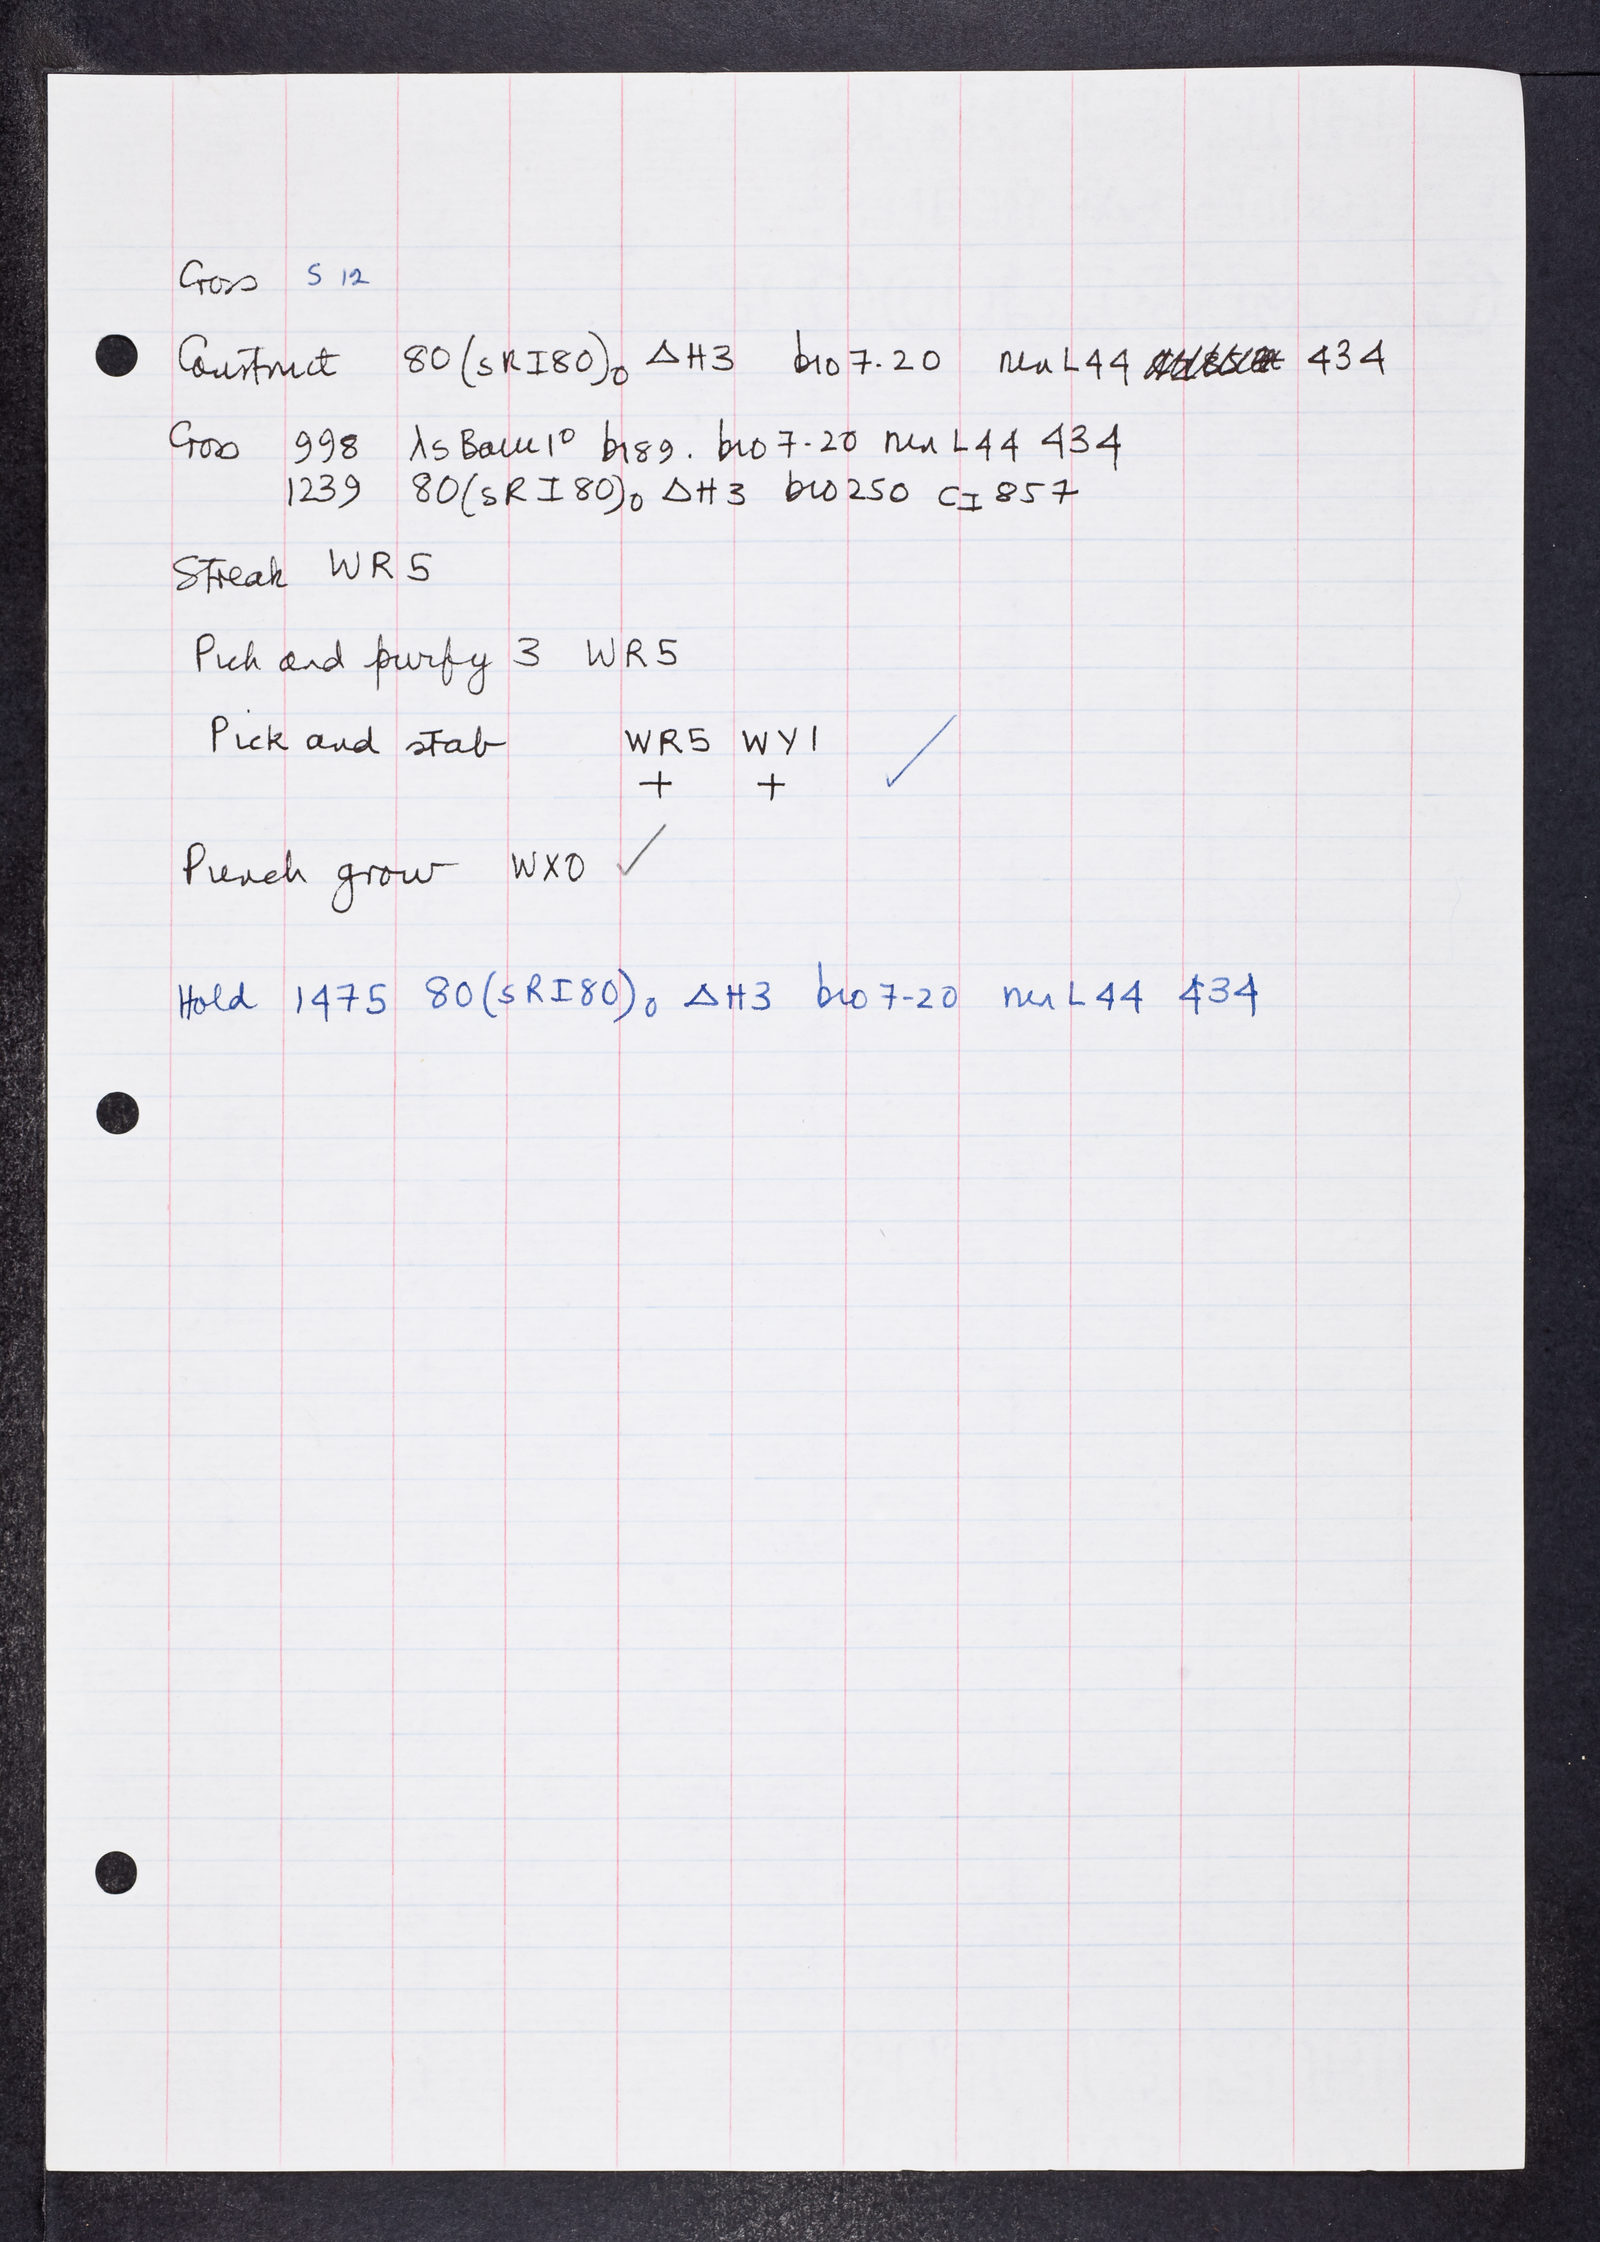 Cross S 12
Construct 80(sRI80)₀ ΔH3 bio7-20 nin L44 434
Cross 998 λsBam1° b189. bio7-20 nin L44 434
1239 80(sRI80)₀ ΔH3 bio250 cI857
Streak WR5
Pick and purify 3 WR5
Pick and stab WR5 WY1 ✓
+ +
Preach grow WX0 ✓
Hold 1475 80(sRI80)₀ ΔH3 bio7-20 nin L44 434